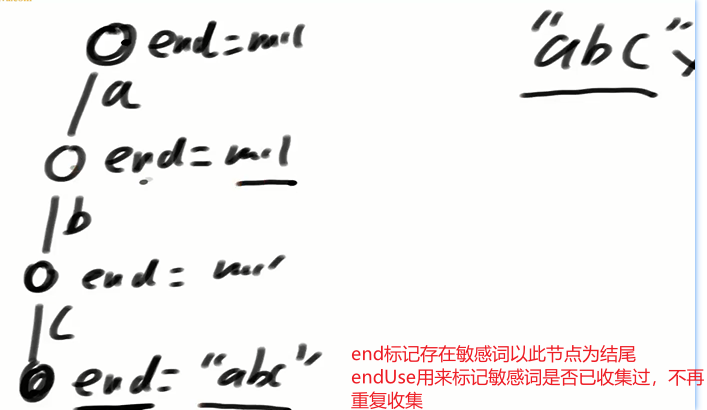 end=null "abc"
a
end=null
b
end=null
c
end="abc"
end标记存在敏感词以此节点为结尾
endUse用来标记敏感词是否已收集过，不再
重复收集